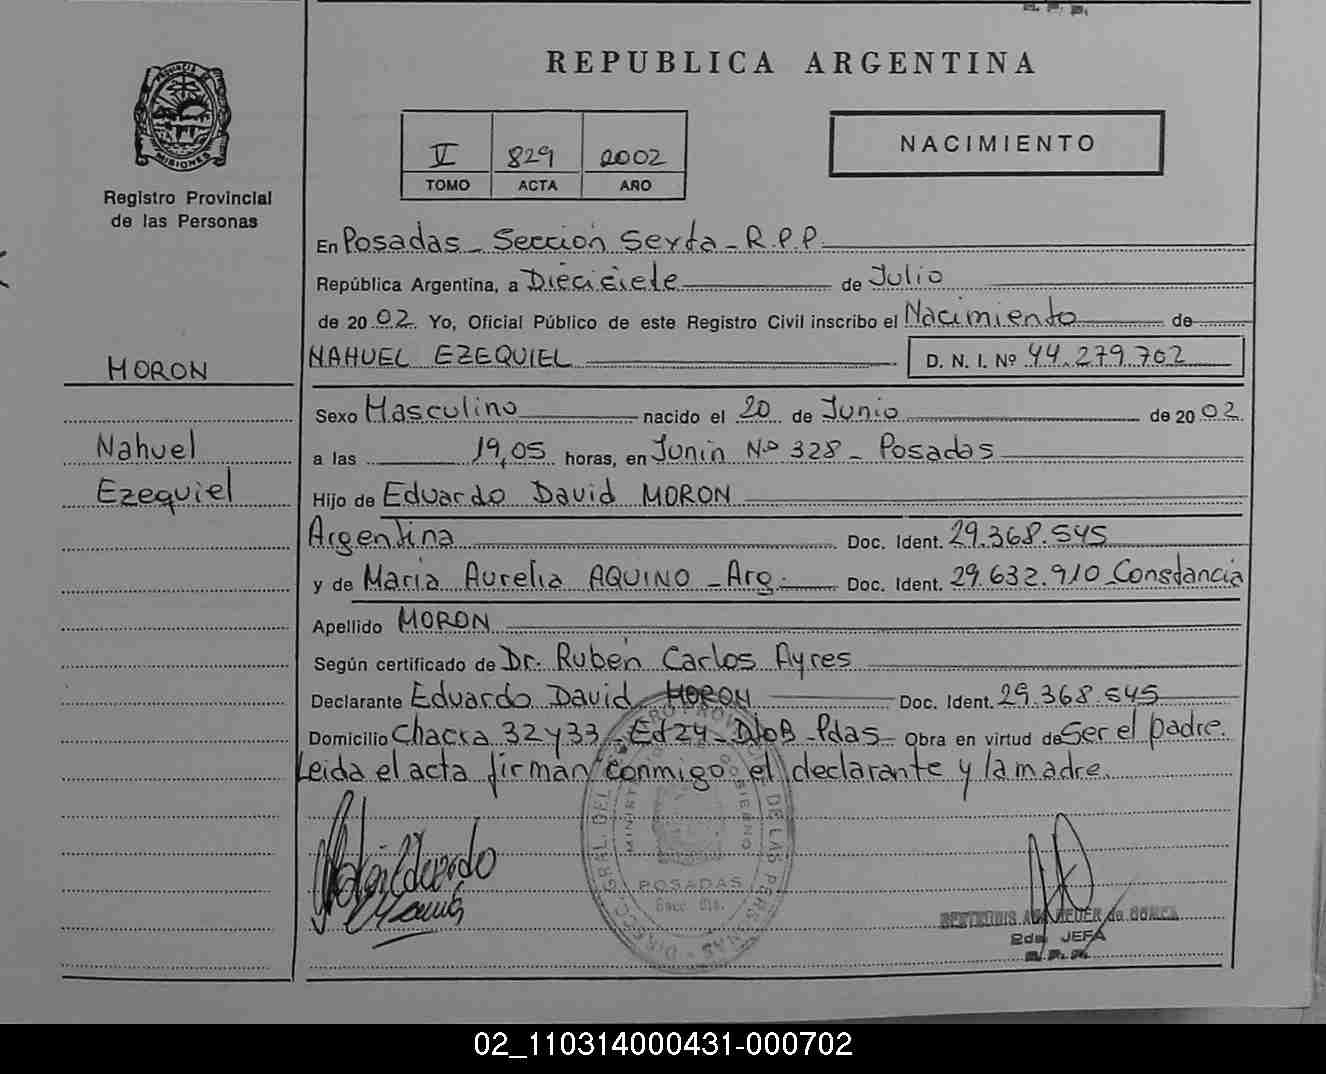 REPUBLICA ARGENTINA
PROVINCIA DE MISIONES
Registro Provincial
de las Personas
V 829 2002
TOMO ACTA AÑO
NACIMIENTO
En Posadas - Sección Sexta - R.P.P.
República Argentina, a Diecisiete de Julio
de 2002. Yo, Oficial Público de este Registro Civil inscribo el Nacimiento de
NAHUEL EZEQUIEL D. N. I. Nº 44.279.702
MORON
Nahuel
Ezequiel
Sexo Masculino nacido el 20 de Junio de 2002
a las 19,05 horas, en Junín Nº 328 - Posadas
Hijo de Eduardo David MORON
Argentina Doc. Ident. 29.368.545
y de María Aurelia AQUINO - Arg. Doc. Ident. 29.632.910 Constancia
Apellido MORON
Según certificado de Dr. Rubén Carlos Ayres
Declarante Eduardo David MORON Doc. Ident. 29.368.545
Domicilio Chacra 32 y 33 - Ed 24 - Dto B - Pdas - Obra en virtud de Ser el padre.
Leida el acta firman conmigo el declarante y la madre.
POSADAS
2da. JEFA
02_110314000431-000702